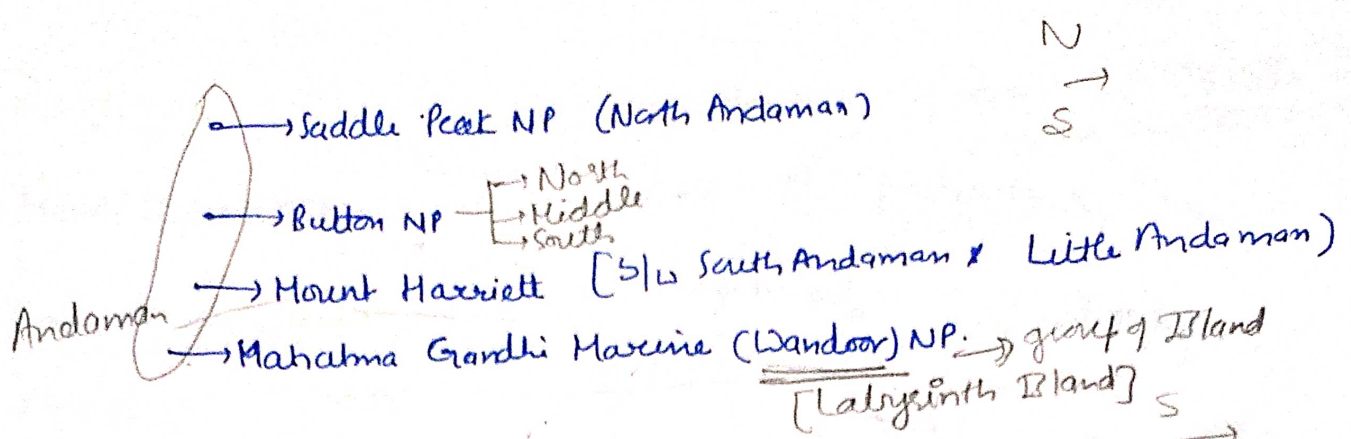 N
→
S
→ Saddle Peak NP (North Andaman)
→ Button NP → North
→ Middle
→ South
→ Mount Harriett [b/w South Andaman & Little Andaman)
Andaman
→ Mahatma Gandhi Marine (Wandoor) NP. → group of Island
[Labyrinth Island]
S
→